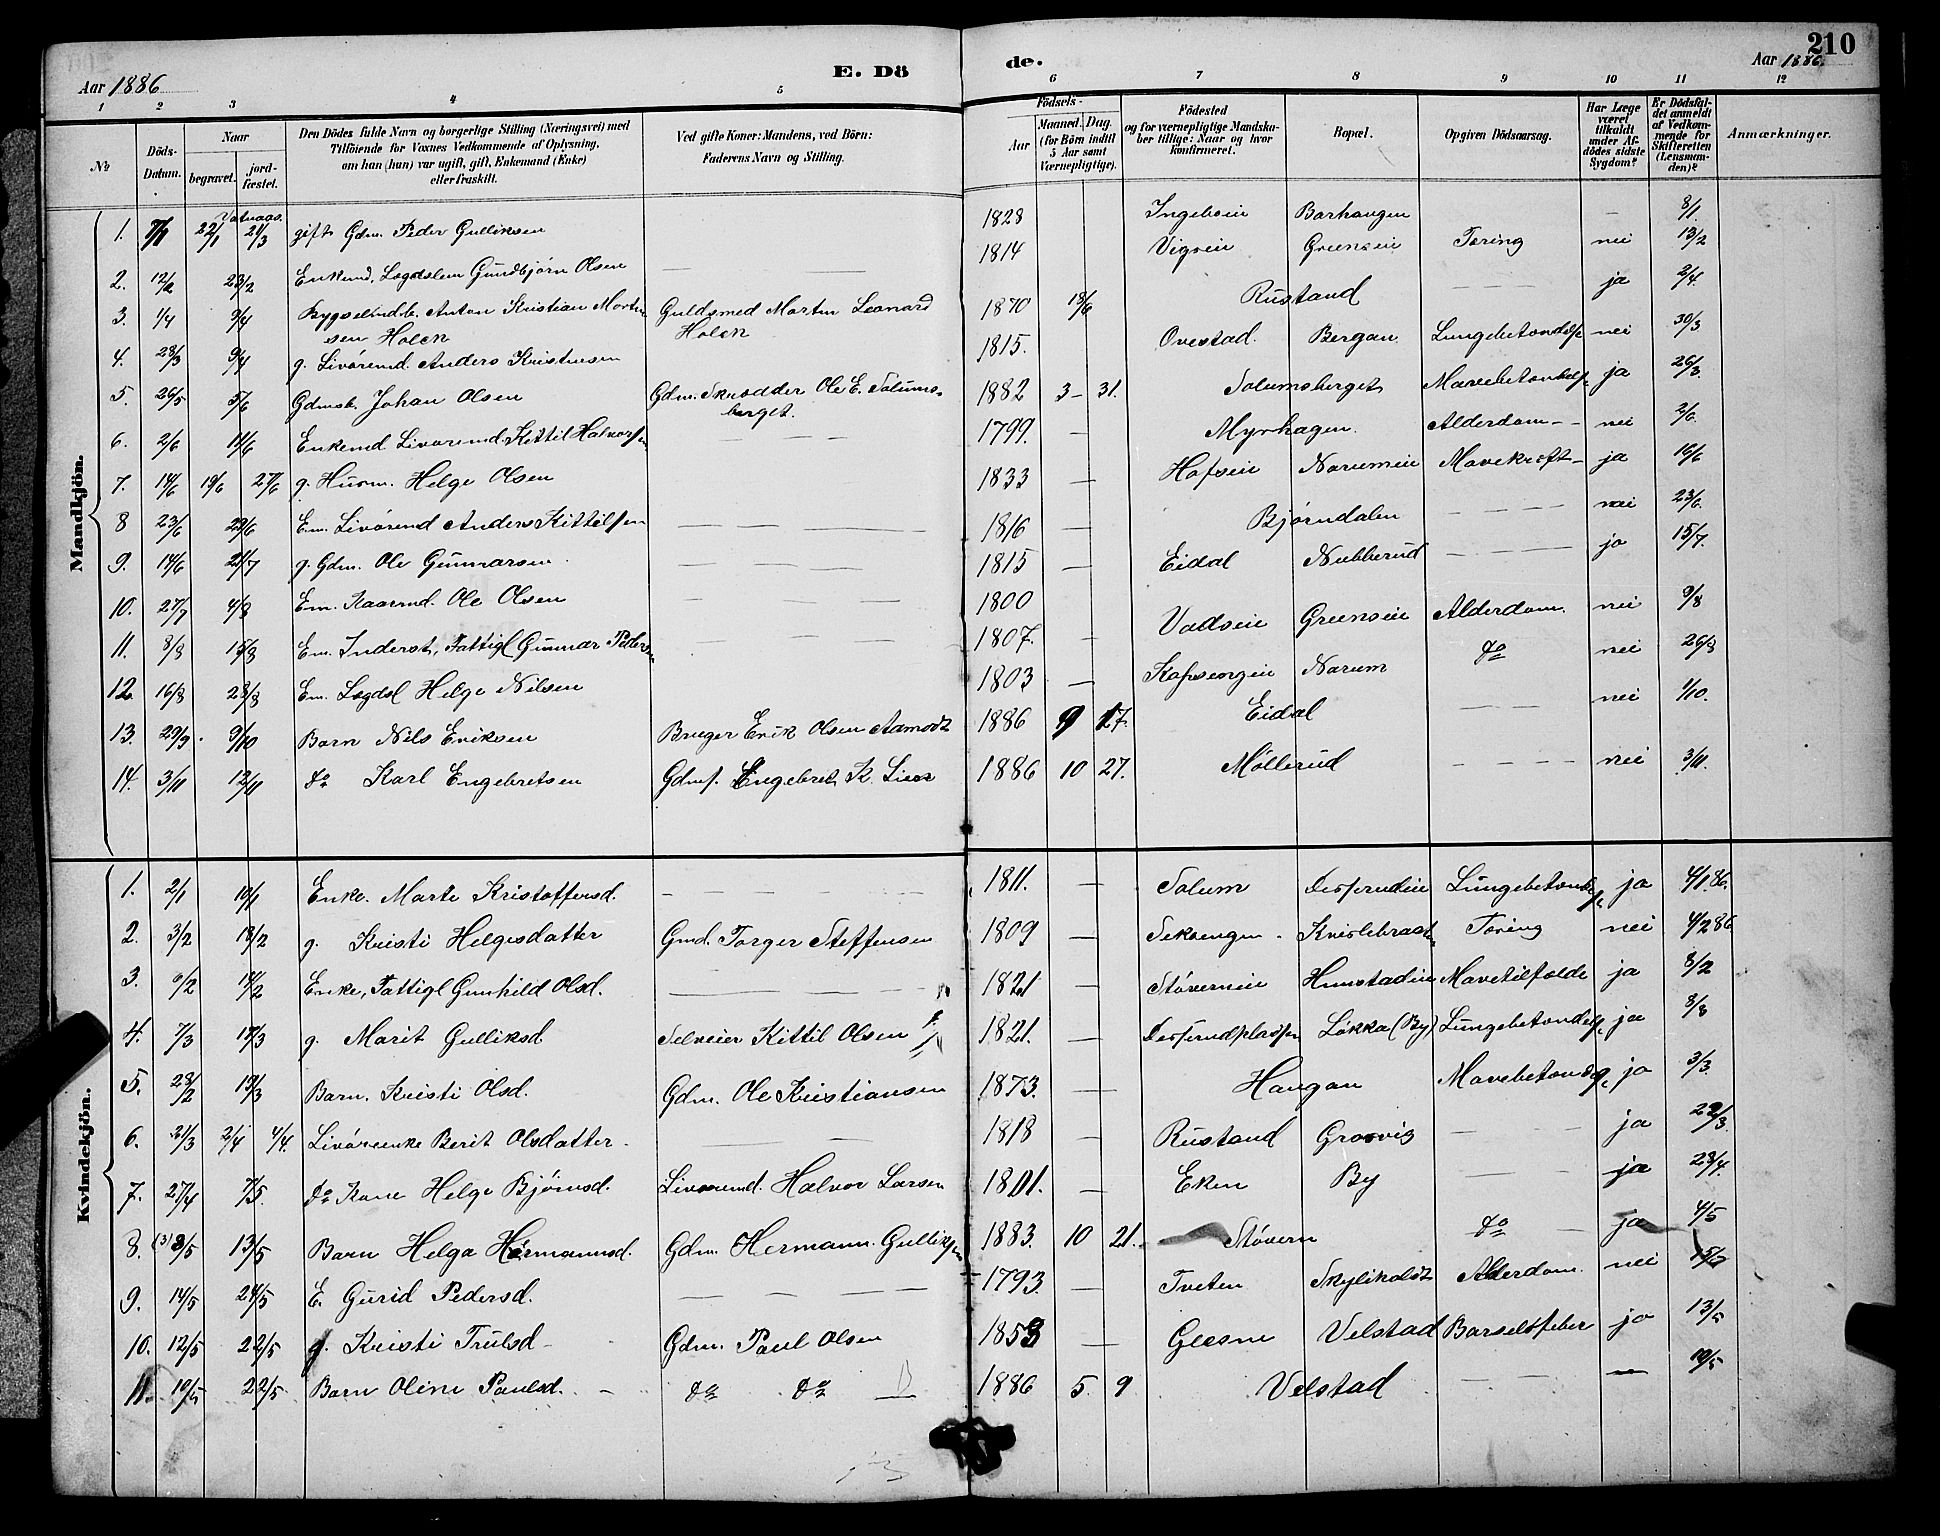 210
Aar 1886 E. Dö de. Aar 1886.
1 2 3 4 5 6 7 8 9 10 11 12
No
Döds-Datum.
Naar begravet. jord-fæstet.
Den Dödes fulde Navn og borgerlige Stilling (Næringsvei) med
Tilföiende for Voxnes Vedkommende af Oplysning,
om han (hun) var ugift, gift, Enkemand (Enke)
eller fraskilt.
Ved gifte Koner: Mandens, ved Börn:
Faderens Navn og Stilling.
Födsels-
Aar Maaned. Dag.
(for Börn indtil 5 Aar samt Værnepligtige).
Födested
og for værnepligtige Mandska-
ber tillige: Naar og hvor
konfirmeret.
Bopæl.
Opgiven Dödsaarsag.
Har Læge været tilkaldt under Afdödes sidste Sygdom?
Er Dödsfaldet anmeldt af Vedkommende for Skifteretten (Lensmanden)?
Anmærkninger.
Mandkjön.
1. 7/1 22/1 21/3 gift Gdm. Peder Gulliksen 1828 Ingeliseie Barhaugen — 8/1.
2. 12/2 23/2 Enkemd. Lægdslem Gundbjørn Olsen 1814 Vigseie Greenseie Tæring nei 13/2
3. 1/4 9/4 Anton Kristian Morten-
sen Holck Guldsmed Morten Leonard
Holck 1870 18/6 Rustand ja 2/4.
4. 28/3 9/4 g. Livøremd. Anders Kristensen 1815. Ovestad. Bergan. Lungebetændelse nei 30/3
5. 26/5 5/6 Gdmsb. Johan Olsen Gdm. Skrædder Ole E. Solums-
berget. 1882 3 — 31. Solumsberget Mavebetændelse ja
6. 2/6 11/6 Enkemd Livøremd. Kittil Halvorsen 1799. Myrhagen. Alderdom — nei 2/6.
7. 14/6 19/6 27/6 g. Husm. Helge Olsen 1833 — Hofseie Narumeie Mavekræft — ja 16/6
8 23/6 29/6 Em. Livøremd Anders Kittilsen 1816 — Bjørndalen nei 23/6.
9. 14/6 21/7 g. Gdm. Ole Gunnarsen 1815 — Eidal Nubberud ja 15/7.
10. 27/7 4/8 Em. Kaarmd. Ole Olsen 1800 Vadseie Greenseie Alderdom. nei 9/8
11. 8/8 15/8 Em. Inderst, Fattigl Gunnar Pedersen 1807. — do nei 26/8
12. 16/8 28/8 Em. Lægdsl Helge Nilsen 1803 — Narum nei 1/10.
13. 29/9. 9/10 Barn Nils Eriksen Bruger Erik Olsen Aamodt 1886 9 17. Eidal
14. 3/11 12/11 do Karl Engebretsen Gdmf. Engebret K. Lien 1886 10 27. Møllerud nei 3/11.
Kvindekjön.
1. 2/1 10/1 Enke. Marte Kristoffersd. 1811. — Solum Lungebetændelse ja 4/1 86.
2. 3/2 13/2 g. Kristi Helgesdatter Gmd. Torger Steffensen 1809 — Sekvengen Tæring nei 4/2 86
3. 6/2 14/2 Enke, Fattigl Gunhild Olsd. 1821 — Støverneie Hunstadeie Mavetilfælde ja 8/2
4. 7/3 17/3 g. Marit Gulliksd Selveier Kittil Olsen 1821. — Løkka (By) Lungebetændelse ja 8/3
5. 28/2 13/3 Barn. Kristi Olsd. Gdm. Ole Kristiansen 1873. — Haugan Mavebetændelse ja 3/3.
6. 21/3 2/4 4/4. Livøreenke Berit Olsdatter 1818 — Rustand Grosvig ja 22/3.
7. 27/4 7/5. do Kone Helge Bjørnsd. Livøremd. Halvor Larsen 1801. — Eken By ja 28/4.
8. (3) 3/5 13/5 Barn Helga Hermannsd. Gdm. Hermann Gulliksen 1883. 10 21. Støvern do ja 4/5
9. 14/5 24/5 E. Gurid Pedersd. 1793. — Tveten Alderdom. nei
10. 12/5 22/5 g. Kristi Trulsd Gdm. Paul Olsen 1853 — Glesne Velstad Barselsfeber ja 13/5
11. 10/5 22/5 Barn Oline Paulsd. do do 1886 5 9 Velstad — 10/5